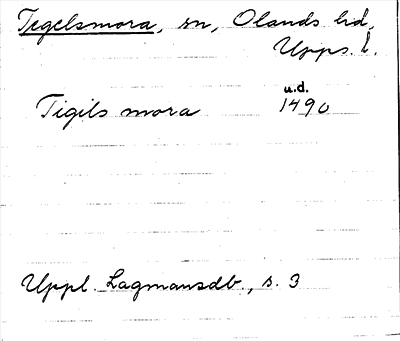 Tegelsmora, sn, Olands hd,
Upps. l.
u.d.
Tigils mora 1490
Uppl. Lagmansdb., s. 3